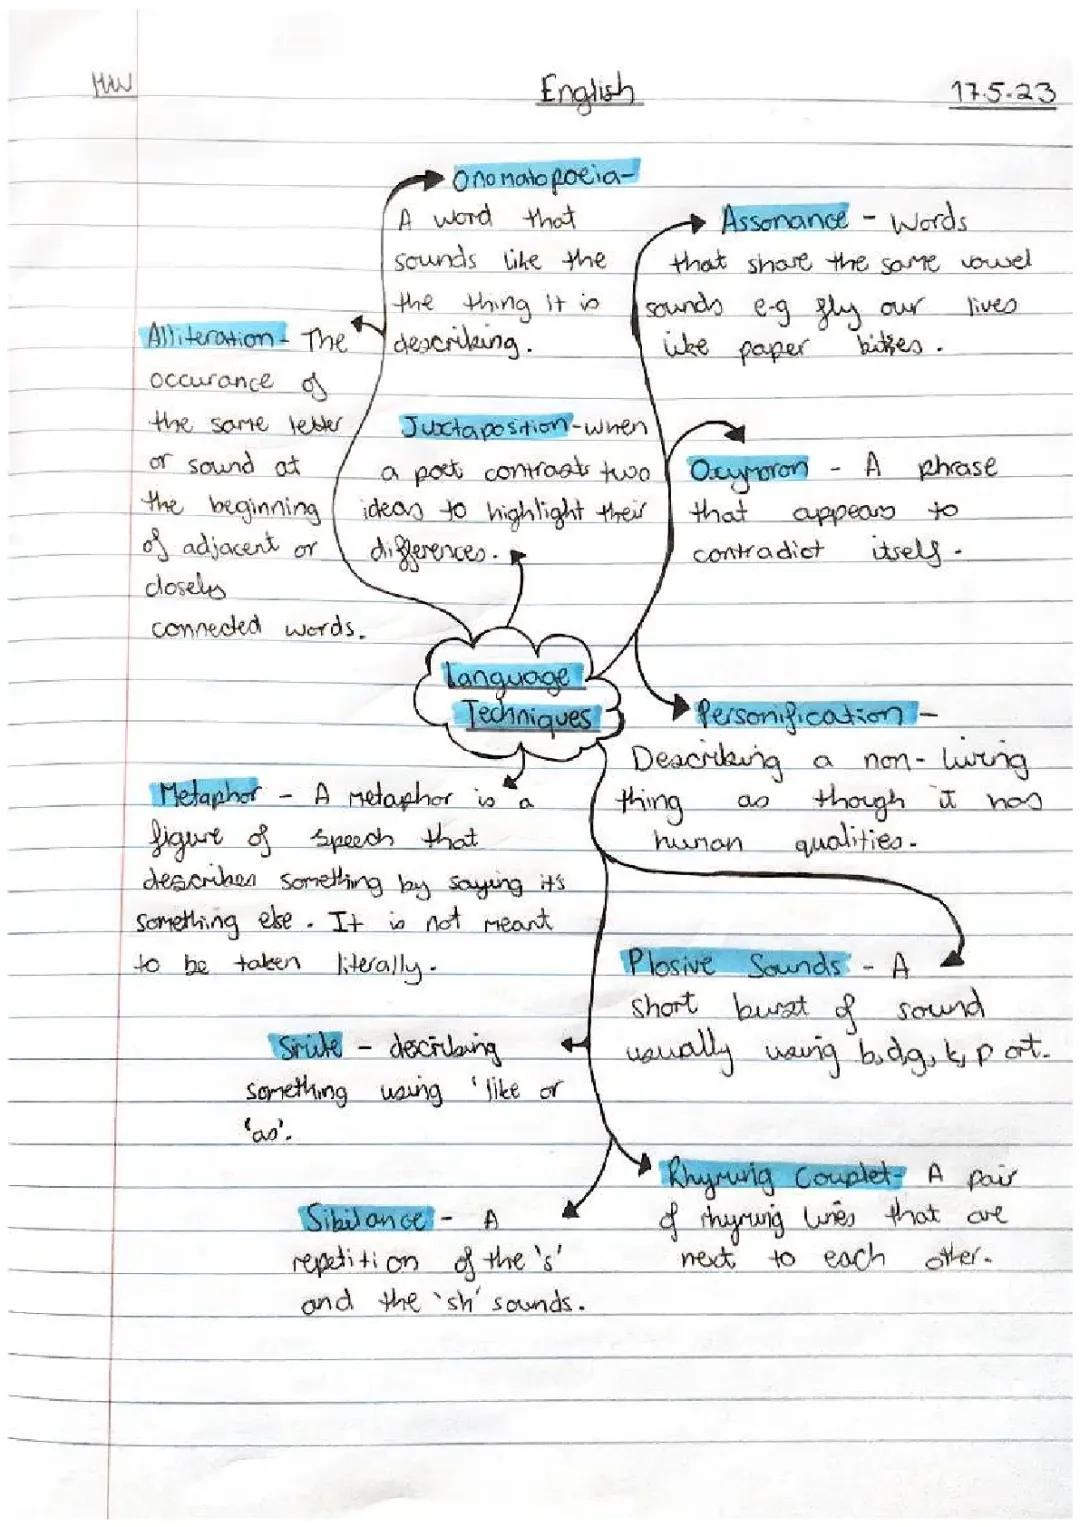 HW
English
17.5.23
Onomatopoeia-
A word that
sounds like the
the thing it is
describing.
Assonance - Words
that share the same vowel
sounds e-g fly our lives
like paper kites.
Alliteration - The
occurance of
the same letter
or sound at
the beginning
of adjacent or
closely
connected words.
Juxtaposition-when
a poet contrasts two
ideas to highlight their
differences.
Oxymoron - A phrase
that appears to
contradict itself.
Language
Techniques
Personification -
Describing a non-living
thing as though it has
human qualities.
Metaphor - A metaphor is a
figure of speech that
describes something by saying it's
something else. It is not meant
to be taken literally.
Plosive Sounds - A
short burst of sound
usually using b,d,g,k,p or t.
Simile - describing
something using 'like or
'as'.
Rhyming Couplet- A pair
of rhyming lines that are
next to each other.
Sibilance - A
repetition of the 's'
and the 'sh' sounds.